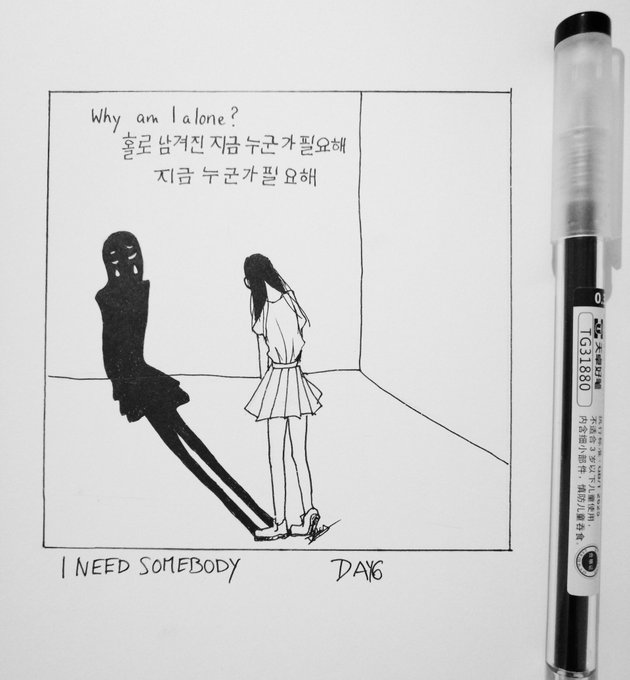 Why am I alone?
홀로 남겨진 지금 누군가 필요해
지금 누군가 필요해
I NEED SOMEBODY
DAY6
TG31880
天卓好笔
不适合3岁以下儿童使用,
内含细小部件,慎防儿童吞食.